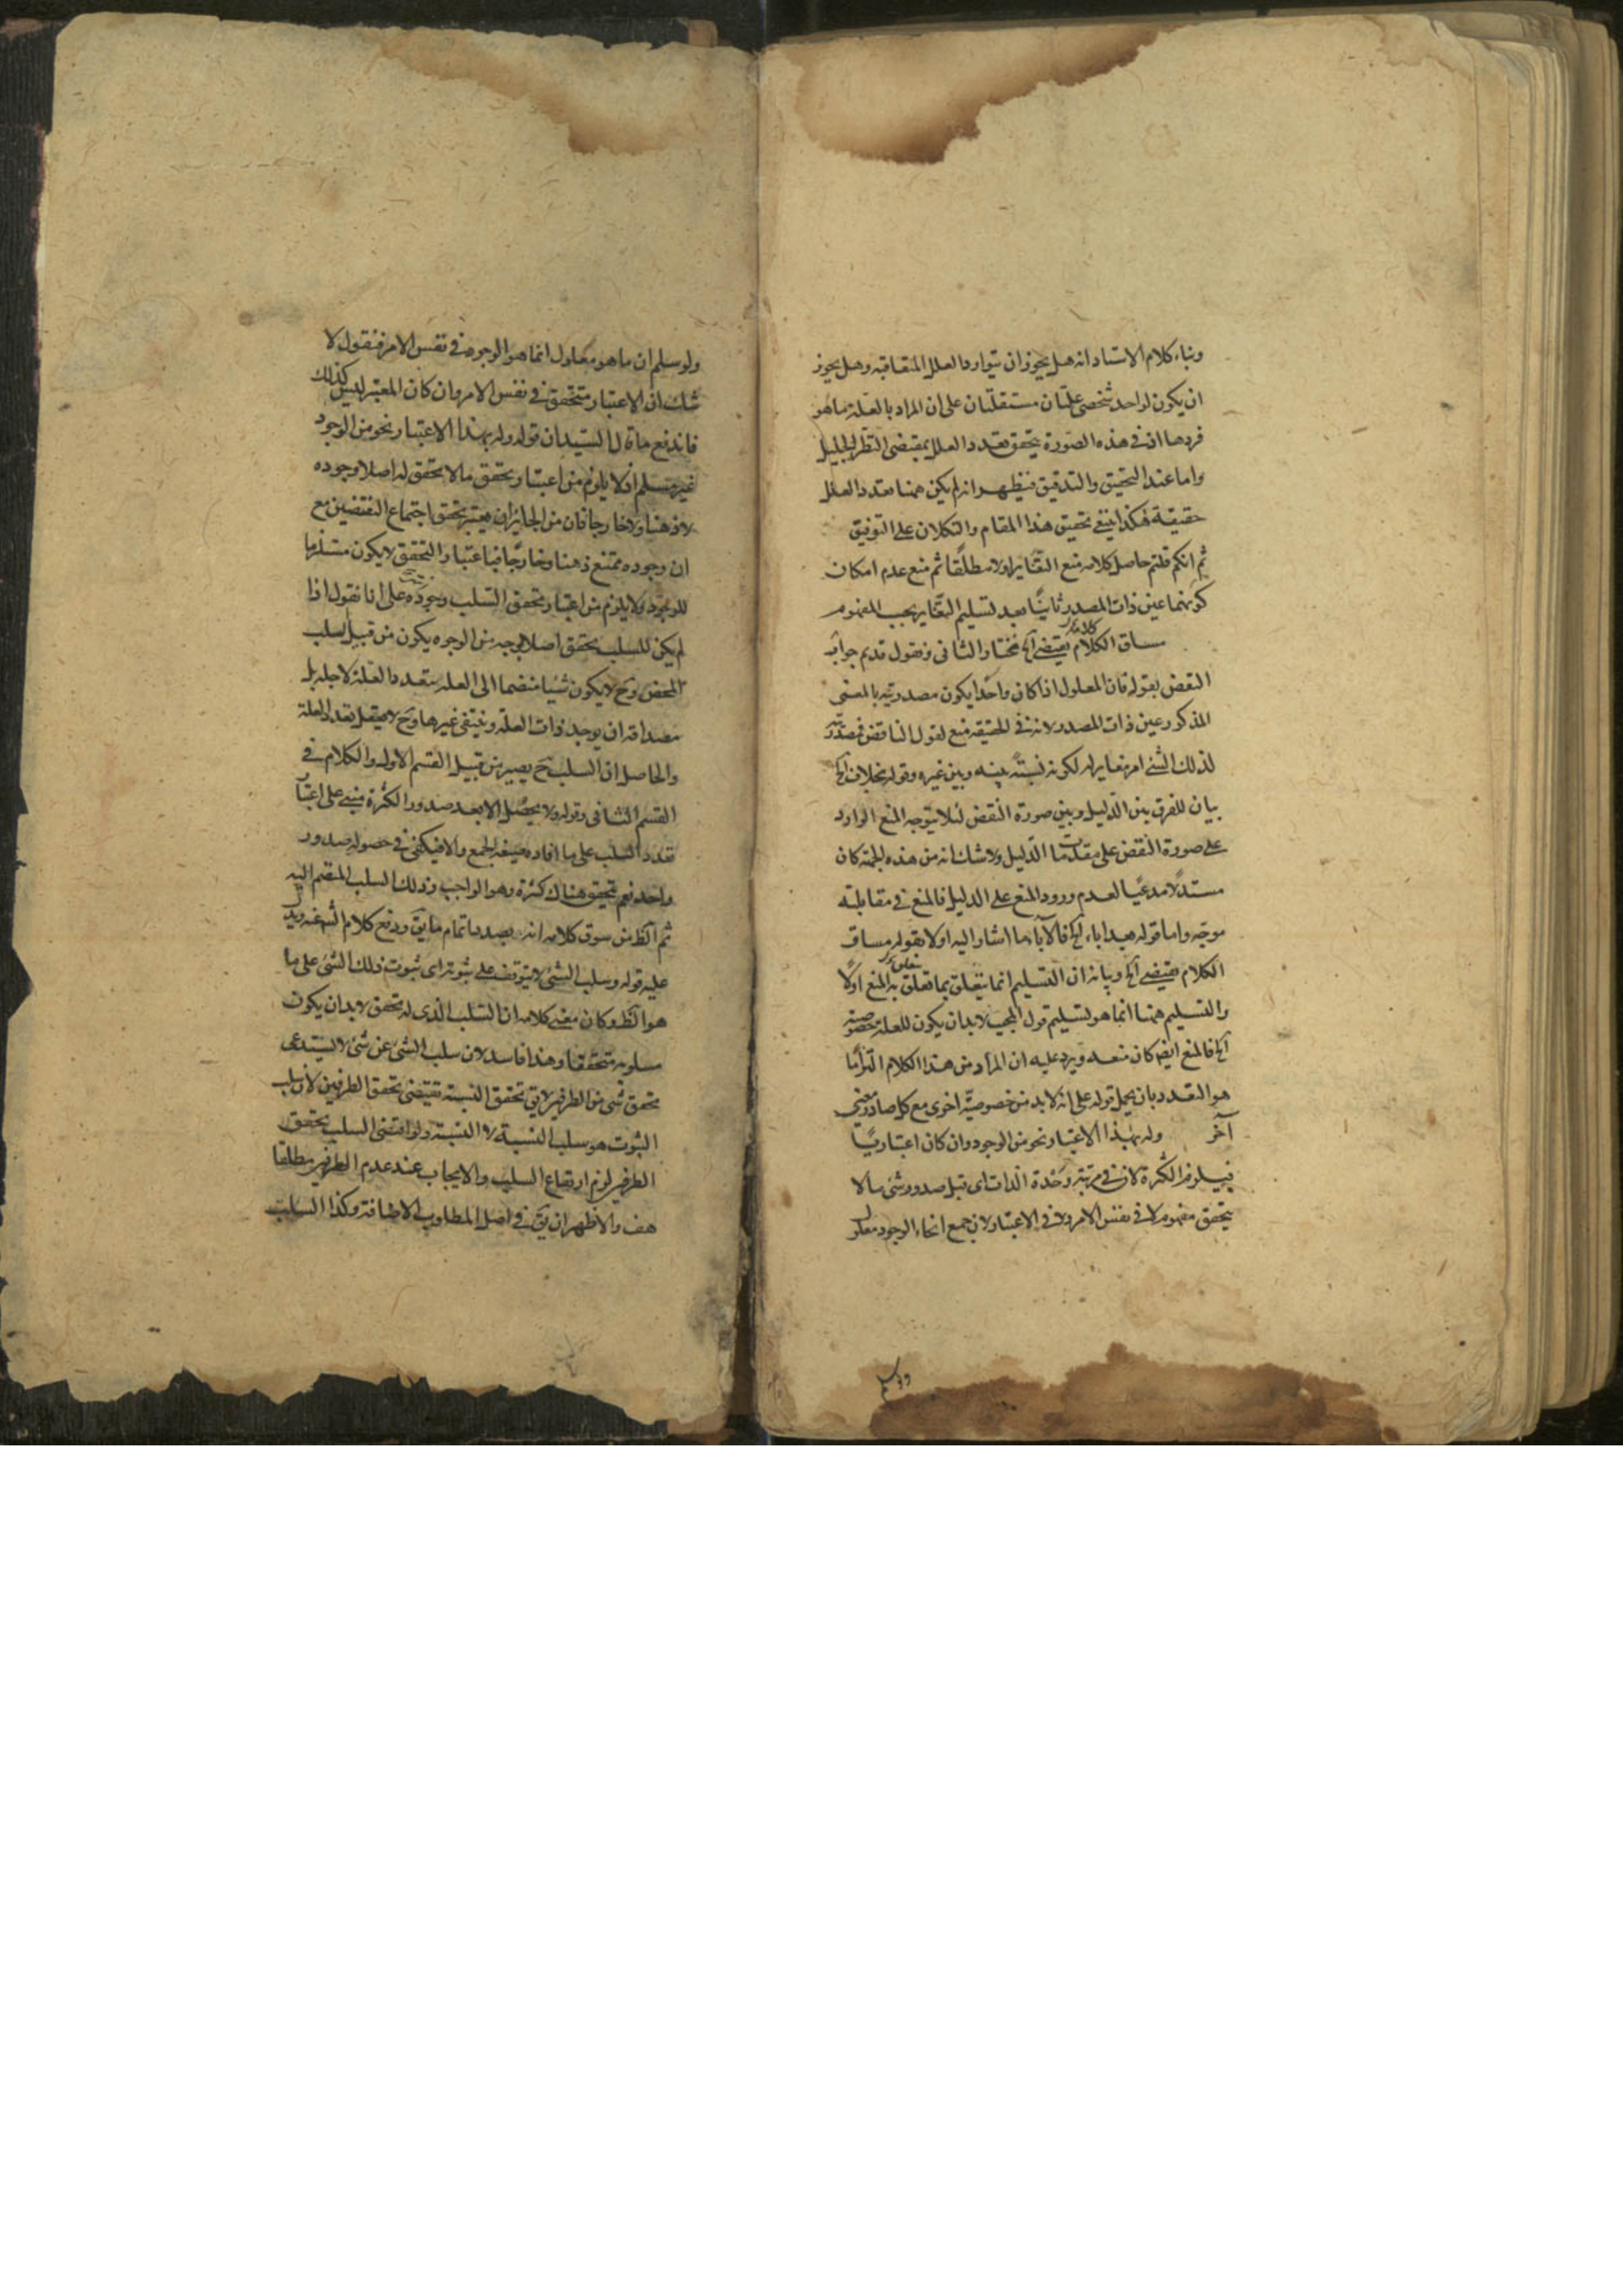 وبناء كلام الاستاد انه هل يجوز ان يتوارد العلل المتعاقبة وهل يجوز
ان يكون لواحد شخصي علتان مستقلتان على ان المراد بالعلة ما هو
فردها اذ في هذه الصورة يتحقق تعدد العلل بمقتضى النظر الجليل
واما عند التحقيق والتدقيق فيظهر انه لم يكن همنا تعدد العلل
حقيقة هكذا ينبغي تحقيق هذا المقام والتكلان على التوفيق
ثم انكم قلتم حاصل كلامه منع التغاير اولا مطلقا ثم منع عدم امكان
كونهما عين ذات المصدر ثانيا بعد تسليم التغاير بحسب المفهوم
مساق الكلام يقتضي الخ فنختار الثاني ونقول قديم جوابه
النقض بقوله فان المعلول اذا كان واحدا يكون مصدريته بالمعنى
المذكور عين ذات المصدر لانه في الحقيقة منع لقول الناقض فمصدريته
لذلك الشئ امر مغاير له لكونه نسبة بينه وبين غيره وقوله بخلاف الخ
بيان للفرق بين الدليل وبين صورة النقض لئلا يتوجه المنع الوارد
على صورة النقض على مقدمات الدليل ولا شك انه من هذه الجهة كان
مستدلا مدعيا لعدم ورود المنع على الدليل فالمنع في مقابلته
موجه واما قوله هيداباء الخ فالاباء ما اشار اليه اولا بقوله مساق
الكلام يقتضي الخ وبيانه ان التسليم انما يتعلق بما تعلق به المنع اولا
والتسليم همنا انما هو لتسليم قول المجيب لابد ان يكون للعلة خصوصية
الخ فالمنع ايضا كان منعه ويرد عليه ان المراد من هذا الكلام التزاما
هو التعدد بان يحمل قوله على انه لابد من خصوصية اخرى مع كل صادر معني
آخر وله بهذا الاعتبار نحو من الوجود وان كان اعتباريا
فيلزم الكثرة لان في مرتبة وحدة الذات اى قبل صدور شئ ما لا
يتحقق مفهوم لا في نفس الامر ولا في الاعتبار لان جمع انحاء الوجود معلول
ولو سلم ان ما هو معلول انما هو الوجود في نفس الامر فنقول لا
شك ان الاعتبار متحقق في نفس الامر وان كان المعتبر ليس كذلك
فاندفع ما قال السيد ان قوله وله بهذا الاعتبار نحو من الوجود
غير مسلم اذ لا يلزم من اعتبار تحقق ما لا تحقق له اصلا وجوده
لا ذهنا ولا خارجا فان من الجائز ان يعتبر تحقق اجتماع النقيضين مع
ان وجوده ممتنع ذهنا وخارجا فباعتبار التحقق لا يكون مستلزما
للوجود ولا يلزم من اعتبار تحقق السلب وجوده على انا نقول اذا
لم يكن للسلب تحقق اصلا بوجه من الوجوه يكون من قبيل سلب
المحض وح لا يكون شيئا منضما الى العلة يتعدد العلة لاجله بل
مصداقه ان يوجد ذات العلة وينتفى غيرها وح لا يعقل تعدد العلة
والحاصل ان السلب ح يصير من قبيل القسم الاول والكلام في
القسم الثاني وقوله ولا يحصل الا بعد صدور الكثرة مبني على اعتبار
تعدد السلب على ما افاده صيغة الجمع والا فيكفى في حصوله صدور
واحد نعم تحقق هناك كثرة وهو الواجب وذلك السلب المنضم اليه
ثم الظ من سوق كلامه انه بصدد اتمام ما يق ودفع كلام الش عنه ويرد
عليه قوله وسلب الشئ لا يتوقف على ثبوته اى ثبوت ذلك الشئ على ما
هو الظ وكان معنى كلامه ان السلب الذى له تحقق لابد ان يكون
مسلوبه متحققا وهذا فاسد لان سلب الشئ عن شئ لا يستدعى
تحقق شئ من الطرفين لا يق تحقق النسبة تقتضى تحقق الطرفين لان سلب
الثبوت هو سلب النسبة لا النسبة ولو اقتضى السلب تحقق
الطرفين لزم ارتفاع السلب والايجاب عند عدم الطرفين مطلقا
هف والاظهر ان يق في اصل المطلوب الاضافة وكذا السلب